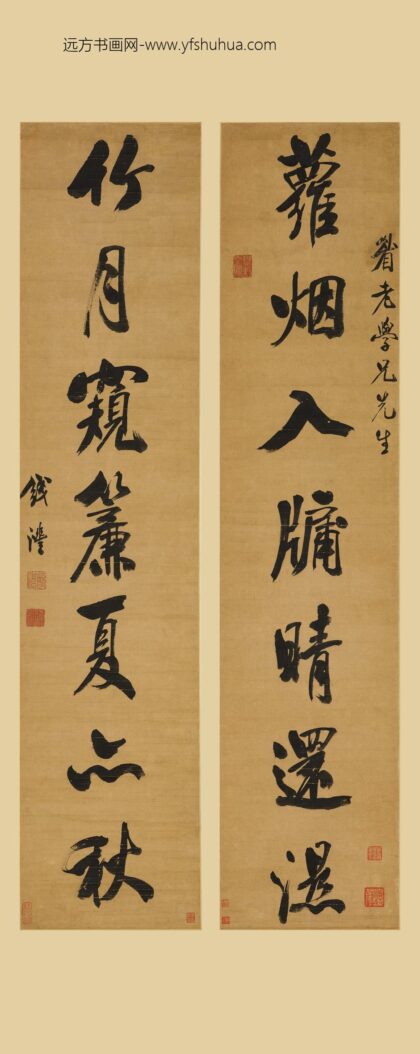 远方书画网-www.yfshuhua.com
眉老學兄先生
蘿烟入牖晴還濕
竹月窺簾夏亦秋
錢灃